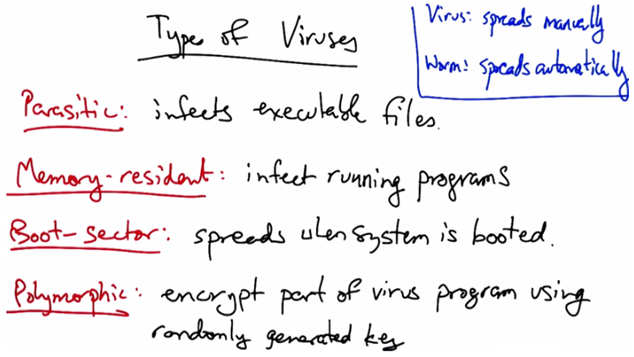 Type of Viruses
Virus: spreads manually
Worm: spreads automatically
Parasitic: infects executable files.
Memory-resident: infect running programs
Boot-sector: spreads when system is booted.
Polymorphic: encrypt part of virus program using
randomly generated key